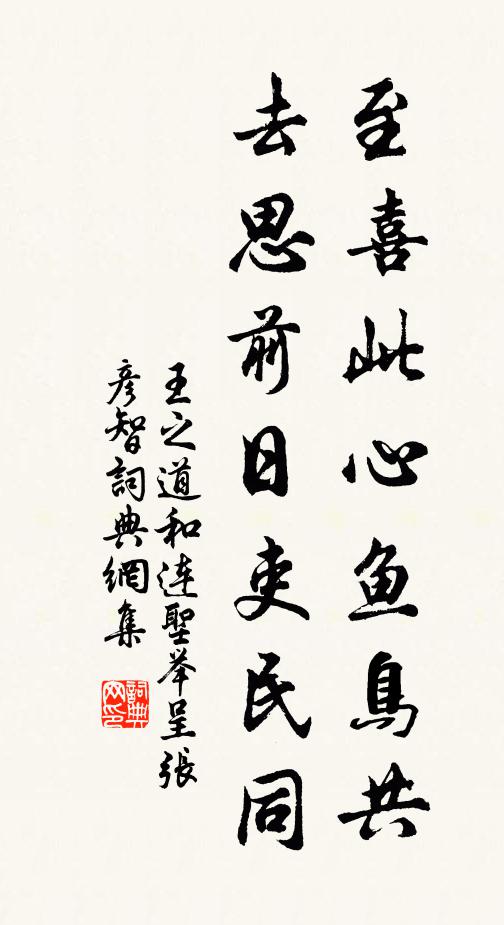 至喜此心鱼鳥共
去思前日吏民同
王之道和連聖举呈張
彦智詞典網集
詞典
网印